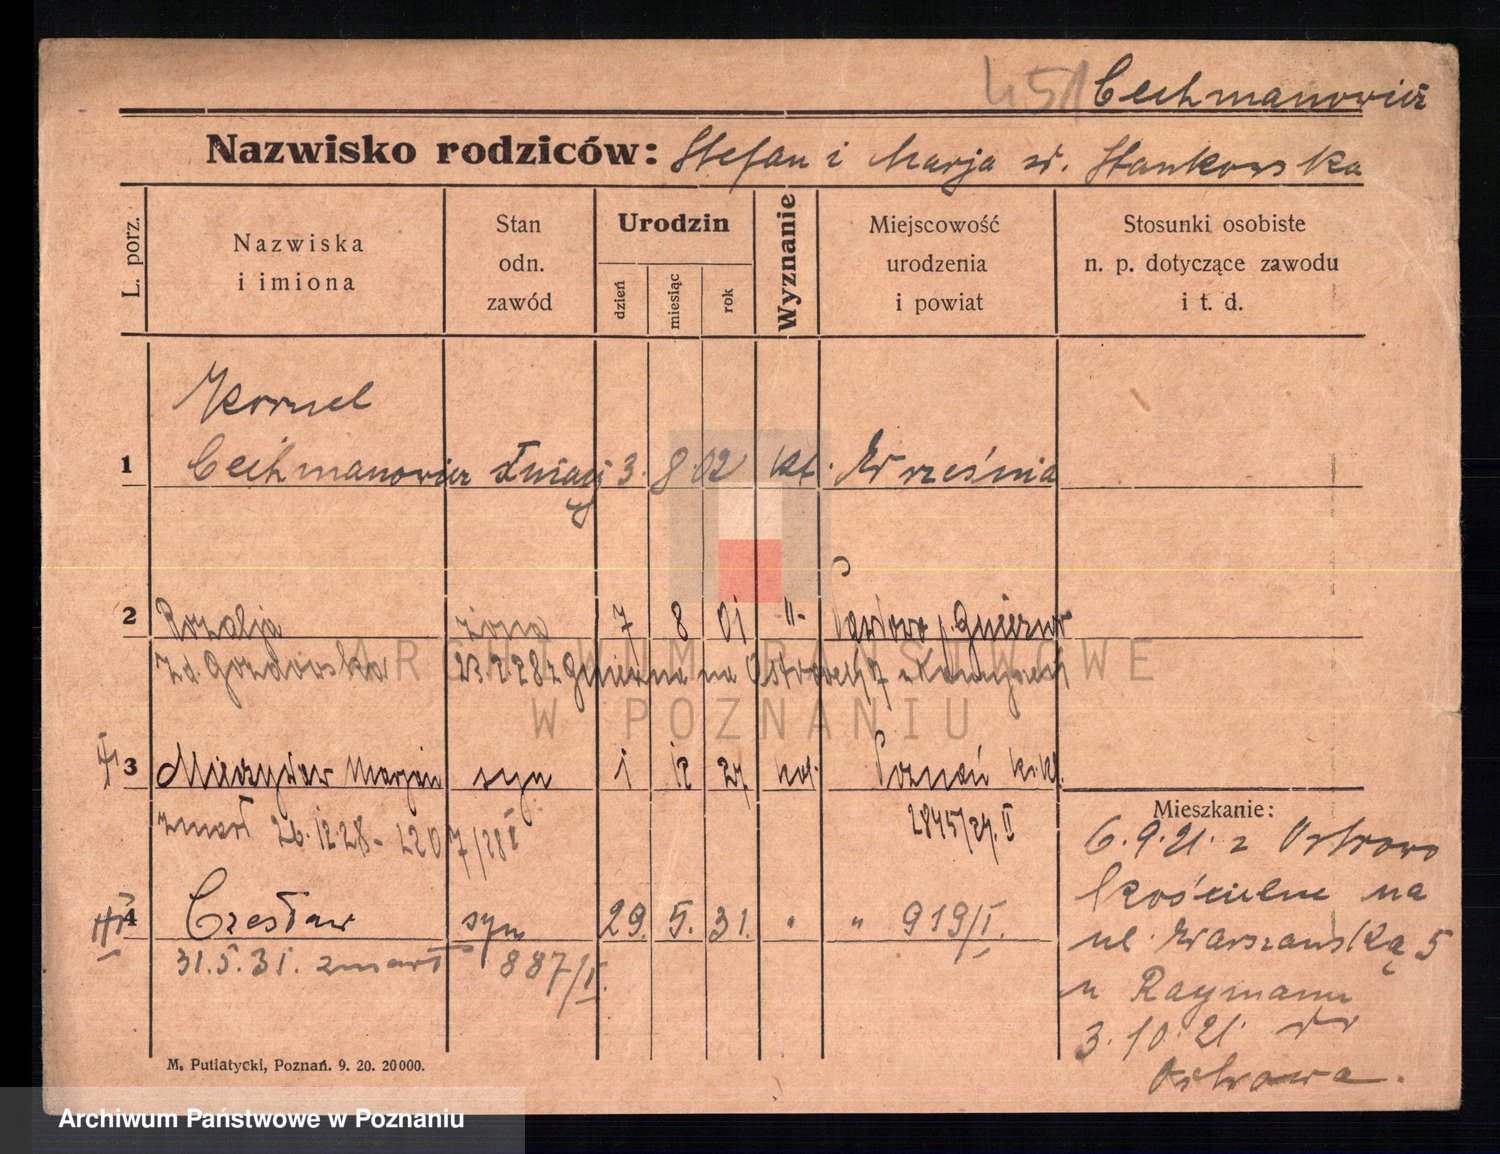 451 Cechmanowicz
Nazwisko rodziców: Stefan i Marja zd. Stankowska
L. porz.
Nazwiska i imiona
Stan odn. zawód
Urodzin
dzień
miesiąc
rok
Wyznanie
Miejscowość urodzenia i powiat
Stosunki osobiste n. p. dotyczące zawodu i t. d.
Kornel
1 Cechmanowicz 3. 8 02 kt. Września
2 Rozalja żona 7 8 01 -"- Gniezno
zd. Gozdowska 28 z Gniezna na
3 Mieczysław Marjan syn 1 12 27 kat. Poznań
zmarł 26.12.28 - 2845/27. II
4 Czesław syn 29. 5. 31. " " 919/I.
31.5.31. zmarł 887/I.
Mieszkanie:
6.9.21. z Ostrowo
kościelne na
ul. Warszawską 5
u Raymann
3.10.21. do
Ostrowa.
M. Putiatycki, Poznań. 9. 20. 20000.
ARCHIWUM PAŃSTWOWE
W POZNANIU
Archiwum Państwowe w Poznaniu